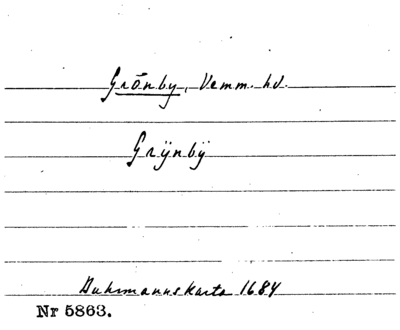 Grönby, Vemm. hd.
Grÿnbÿ
Buhrmannskarta 1684
Nr 5863.